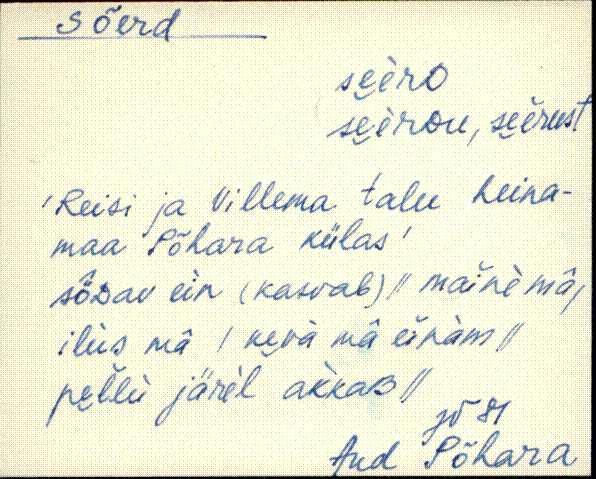 Sõerd
sèèro
sèèrou, sèèrust
'Reisi ja Villema talu heina-
maa Põhara külas'
sȭDav ein (kasvab) // mainè mâ,
ilùs mâ / kevà mâ einàm //
pellù järèl akkaB //
Aud Põhara